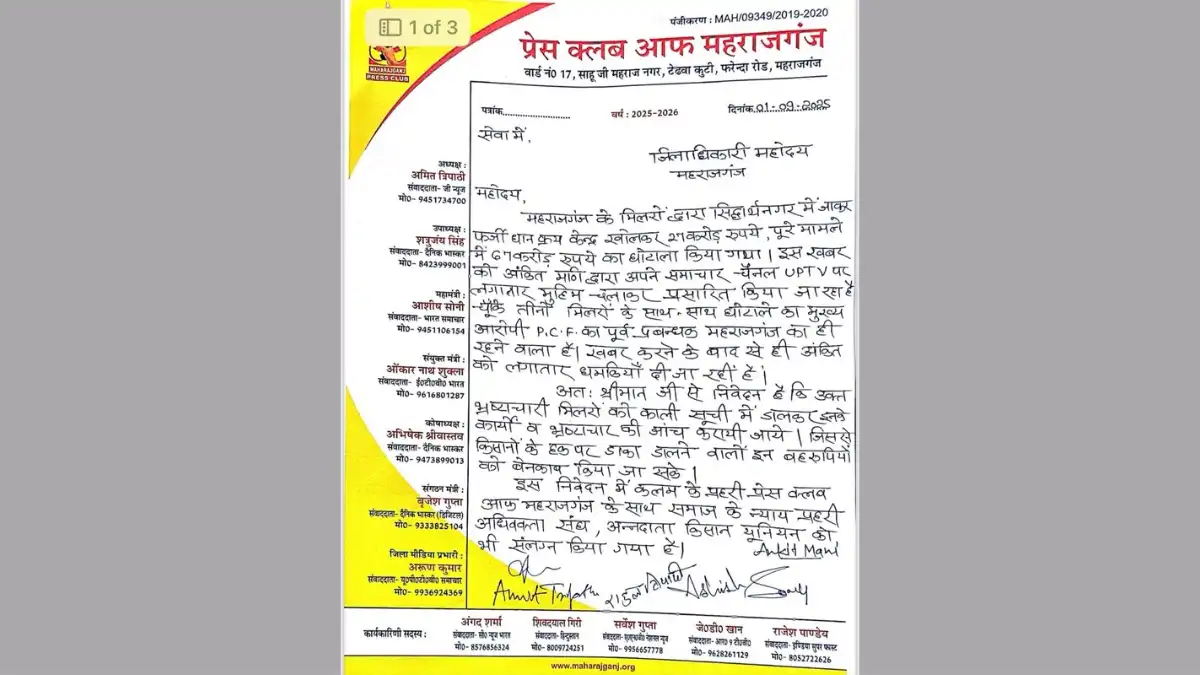 1 of 3
पंजीकरण : MAH/09349/2019-2020
MAHARAJGANJ
PRESS CLUB
प्रेस क्लब आफ महराजगंज
वार्ड नं0 17, साहू जी महराज नगर, टेढवा कुटी, फरेन्दा रोड, महराजगंज
पत्रांक..........................
वर्ष : 2025-2026
दिनांक 01-09-2025
सेवा में,
जिलाधिकारी महोदय
महराजगंज
महोदय,
महराजगंज के मिलरों द्वारा सिद्धार्थनगर में जाकर
फर्जी धान क्रय केन्द्र खोलकर 27 करोड़ रुपये, पूरे मामले
में 67 करोड़ रुपये का घोटाला किया गया। इस खबर
को अंकित मणि द्वारा अपने समाचार-चैनल UPTV पर
लगातार मुहिम चलाकर प्रसारित किया जा रहा है
चूंकि तीनों मिलरों के साथ-साथ घोटाले का मुख्य
आरोपी P.C.F. का पूर्व प्रबन्धक महराजगंज का ही
रहने वाला है। खबर करने के बाद से ही अंकित
को लगातार धमकियाँ दी जा रही है।
अतः श्रीमान जी से निवेदन है कि उक्त
भ्रष्यचारी मिलरों को काली सूची में डालकर इनके
कार्यो व भ्रष्यचार की जांच करायी जाये। जिससे
किसानों के हक पर डाका डालने वालों इन बहरुपियों
को बेनकाब किया जा सके।
इस निवेदन में कलम के प्रहरी-प्रेस क्लव
आफ महराजगंज के साथ समाज के न्याय प्रहरी
अधिवक्ता संघ, अन्नदाता किसान यूनियन को
भी संलग्न किया गया है।
Ankit Mani
Amit Tripathi
राहुल त्रिपाठी
Ashish Sony
अध्यक्ष :
अमित त्रिपाठी
संवाददाता- जी न्यूज
मो0- 9451734700
उपाध्यक्ष :
शत्रुजंय सिंह
संवाददाता- दैनिक भास्कर
मो0- 8423999001
महामंत्री :
आशीष सोनी
संवाददाता- भारत समाचार
मो0- 9451106154
संयुक्त मंत्री :
ओंकार नाथ शुक्ला
संवाददाता- ई0टी0वी0 भारत
मो0- 9616801287
कोषाध्यक्ष :
अभिषेक श्रीवास्तव
संवाददाता- दैनिक भास्कर
मो0- 9473899013
संगठन मंत्री :
बृजेश गुप्ता
संवाददाता- दैनिक भास्कर (डिजिटल)
मो0- 9333825104
जिला मीडिया प्रभारी :
अरूण कुमार
संवाददाता- यू0पी0टी0वी0 समाचार
मो0- 9936924369
कार्यकारिणी सदस्य :
अंगद शर्मा
संवाददाता- सी0 न्यूज भारत
मो0- 8576856324
शिवदयाल गिरी
संवाददाता- हिन्दुस्तान
मो0- 8009724251
सर्वेश गुप्ता
मो0- 9956657778
जे0डी0 खान
संवाददाता- आर0 9 टी0वी0
मो0- 9628261129
राजेश पाण्डेय
संवाददाता- इण्डिया सुपर फास्ट
मो0- 8052722626
www.maharajganj.org